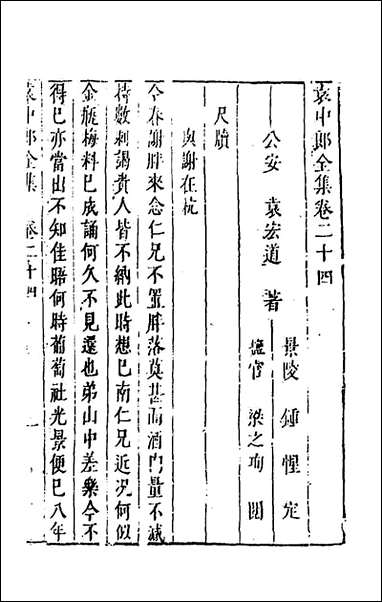 袁中郎全集卷二十四
公安　袁宏道　著
景陵　鍾惺　定
鹽官　梁之珣　閱
尺牘
與謝在杭
今春謝胖來念仁兄不置胖落莫甚而酒門量不減
持數刺謁貴人皆不納此時想已南仁兄近況何似
金瓶梅料已成誦何久不見還也弟山中差樂今不
得已亦當出不知佳晤何時葡萄社光景便已八年
袁中郎全集　卷二十四　一